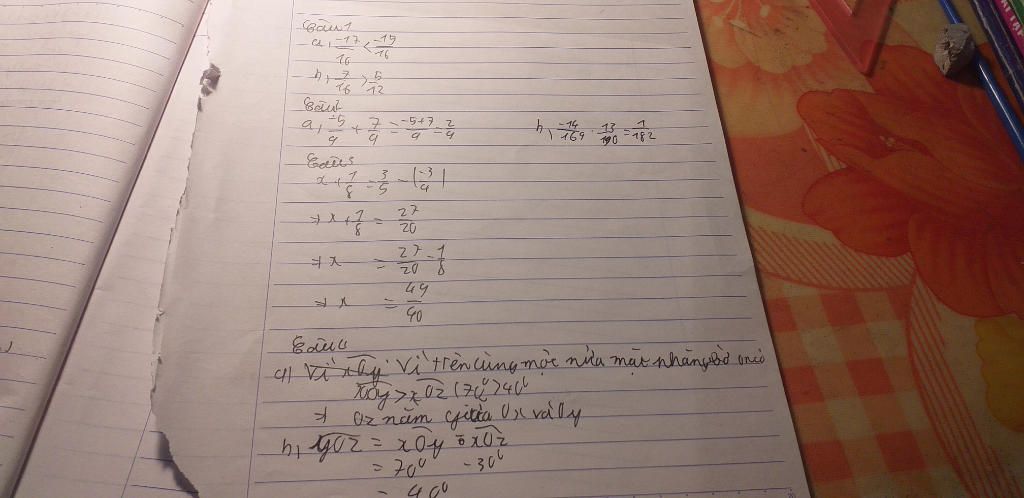 Câu 1
a, -17/16 < -15/16
b, 7/16 > 5/12
Câu 2
a, -5/9 + 7/9 = -5+7/9 = 2/9 b, -14/169 . 13/190 = 1/182
Câu 3
x + 1/8 = 3/5 - (-3/4)
⇒ x + 1/8 = 27/20
⇒ x = 27/20 - 1/8
⇒ x = 49/40
Câu 4
a) Vì xOy Vì trên cùng một nửa mặt phẳng bờ
xOy > xOz (70⁰ > 40⁰
⇒ Oz nằm giữa Ox và Oy
b, yOz = xOy - xOz
= 70⁰ - 30⁰
= 40⁰